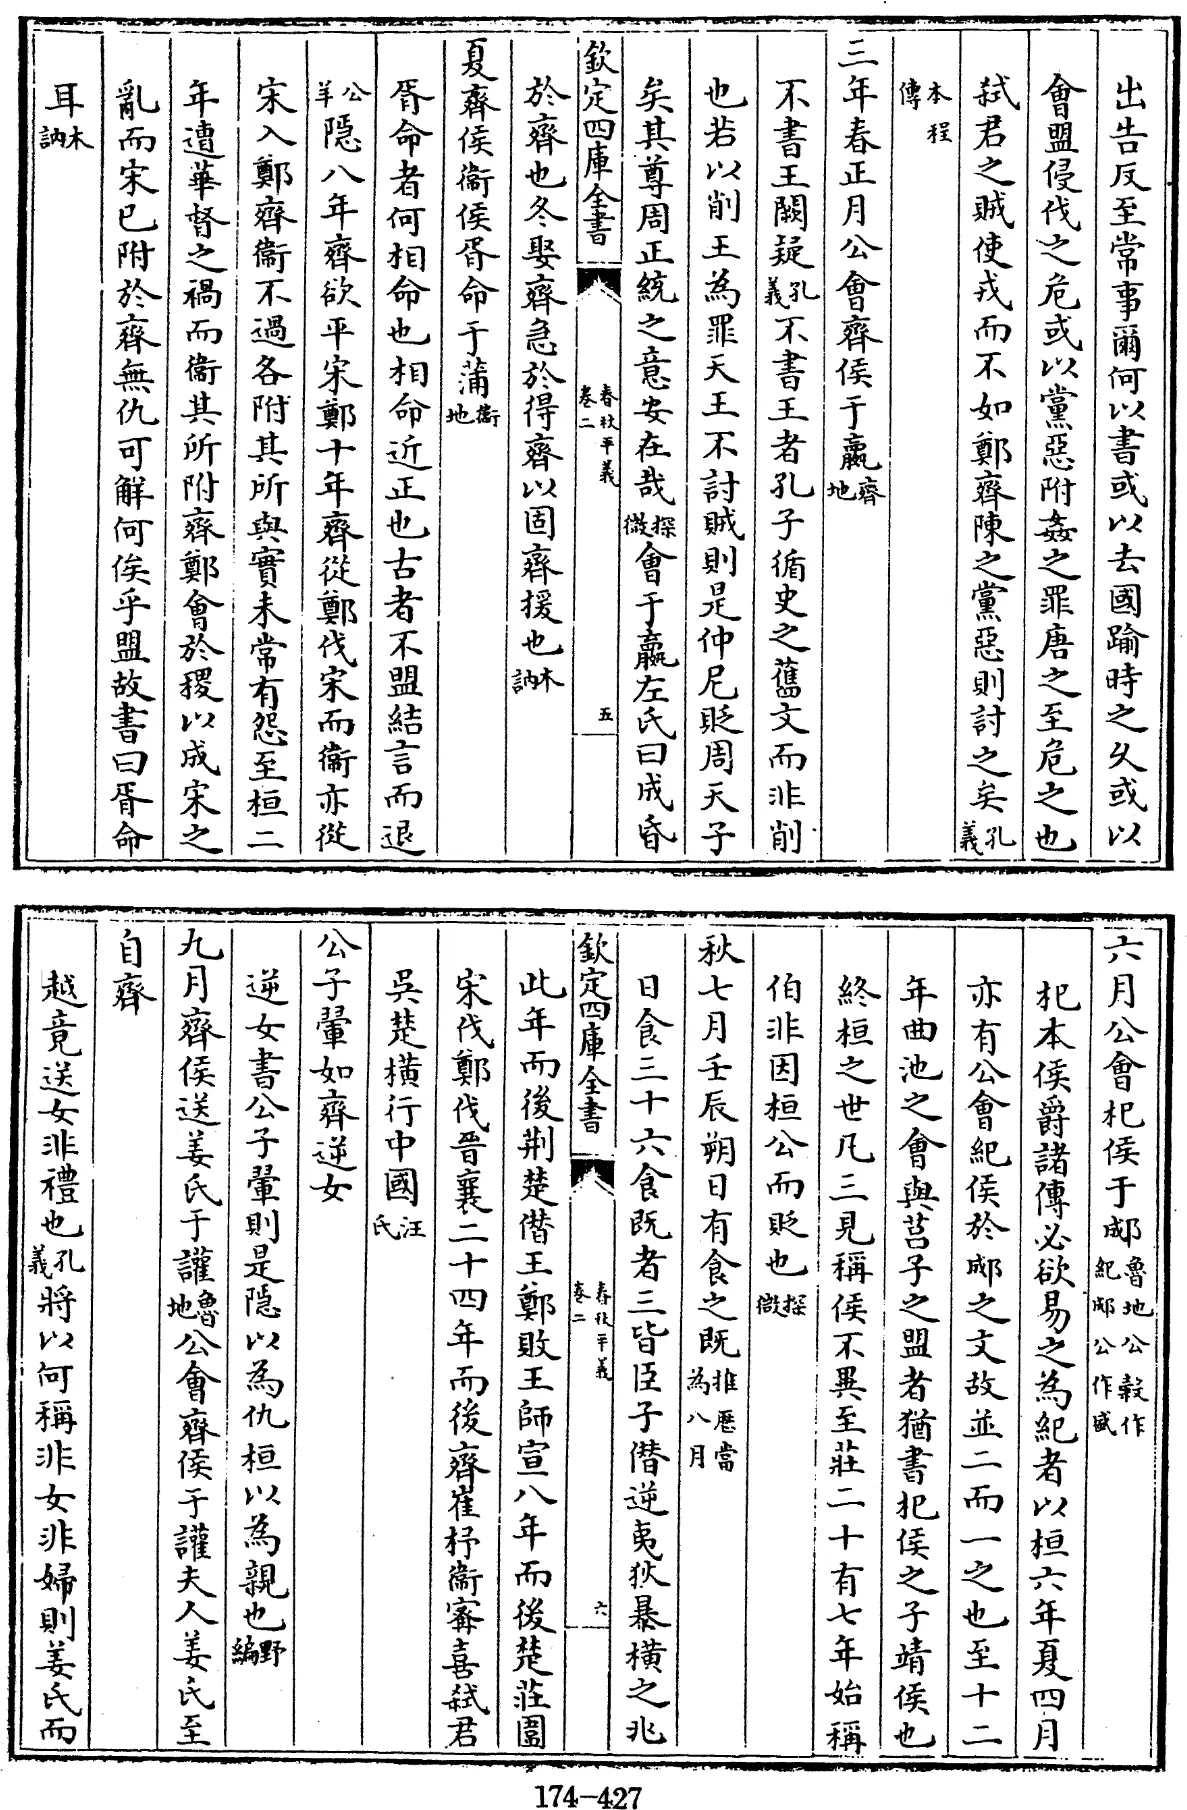 出告反至常事爾何以書或以去國踰時之久或以
會盟侵伐之危或以黨惡附姦之罪唐之至危之也
弑君之賊使戎而不如鄭齊陳之黨惡則討之矣孔義
本程傳
三年春正月公會齊侯于嬴齊地
不書王闕疑孔義不書王者孔子循史之舊文而非削
也若以削王為罪天王不討賊則是仲尼貶周天子
矣其尊周正統之意安在哉探微會于嬴左氏曰成昏
欽定四庫全書 春秋平義 卷二 五
於齊也冬娶齊急於得齊以固齊援也木訥
夏齊侯衞侯胥命于蒲衞地
胥命者何相命也相命近正也古者不盟結言而退
公羊隱八年齊欲平宋鄭十年齊從鄭伐宋而衞亦從
宋入鄭齊衞不過各附其所與實未常有怨至桓二
年遭華督之禍而衞其所附齊鄭會於稷以成宋之
亂而宋已附於齊無仇可解何俟乎盟故書曰胥命
耳木訥
六月公會杞侯于郕魯地公穀作紀郕公作盛
杞本侯爵諸傳必欲易之為紀者以桓六年夏四月
亦有公會紀侯於郕之文故並二而一之也至十二
年曲池之會與莒子之盟者猶書杞侯之子靖侯也
終桓之世凡三見稱侯不異至莊二十有七年始稱
伯非因桓公而貶也探微
秋七月壬辰朔日有食之既推厯當為八月
日食三十六食既者三皆臣子僭逆夷狄暴橫之兆
欽定四庫全書 春秋平義 卷二 六
此年而後荆楚僭王鄭敗王師宣八年而後楚莊圍
宋伐鄭伐晉襄二十四年而後齊崔杼衞寗喜弑君
吳楚橫行中國汪氏
公子翬如齊逆女
逆女書公子翬則是隱以為仇桓以為親也野編
九月齊侯送姜氏于讙魯地公會齊侯于讙夫人姜氏至
自齊
越竟送女非禮也孔義將以何稱非女非婦則姜氏而
174-427